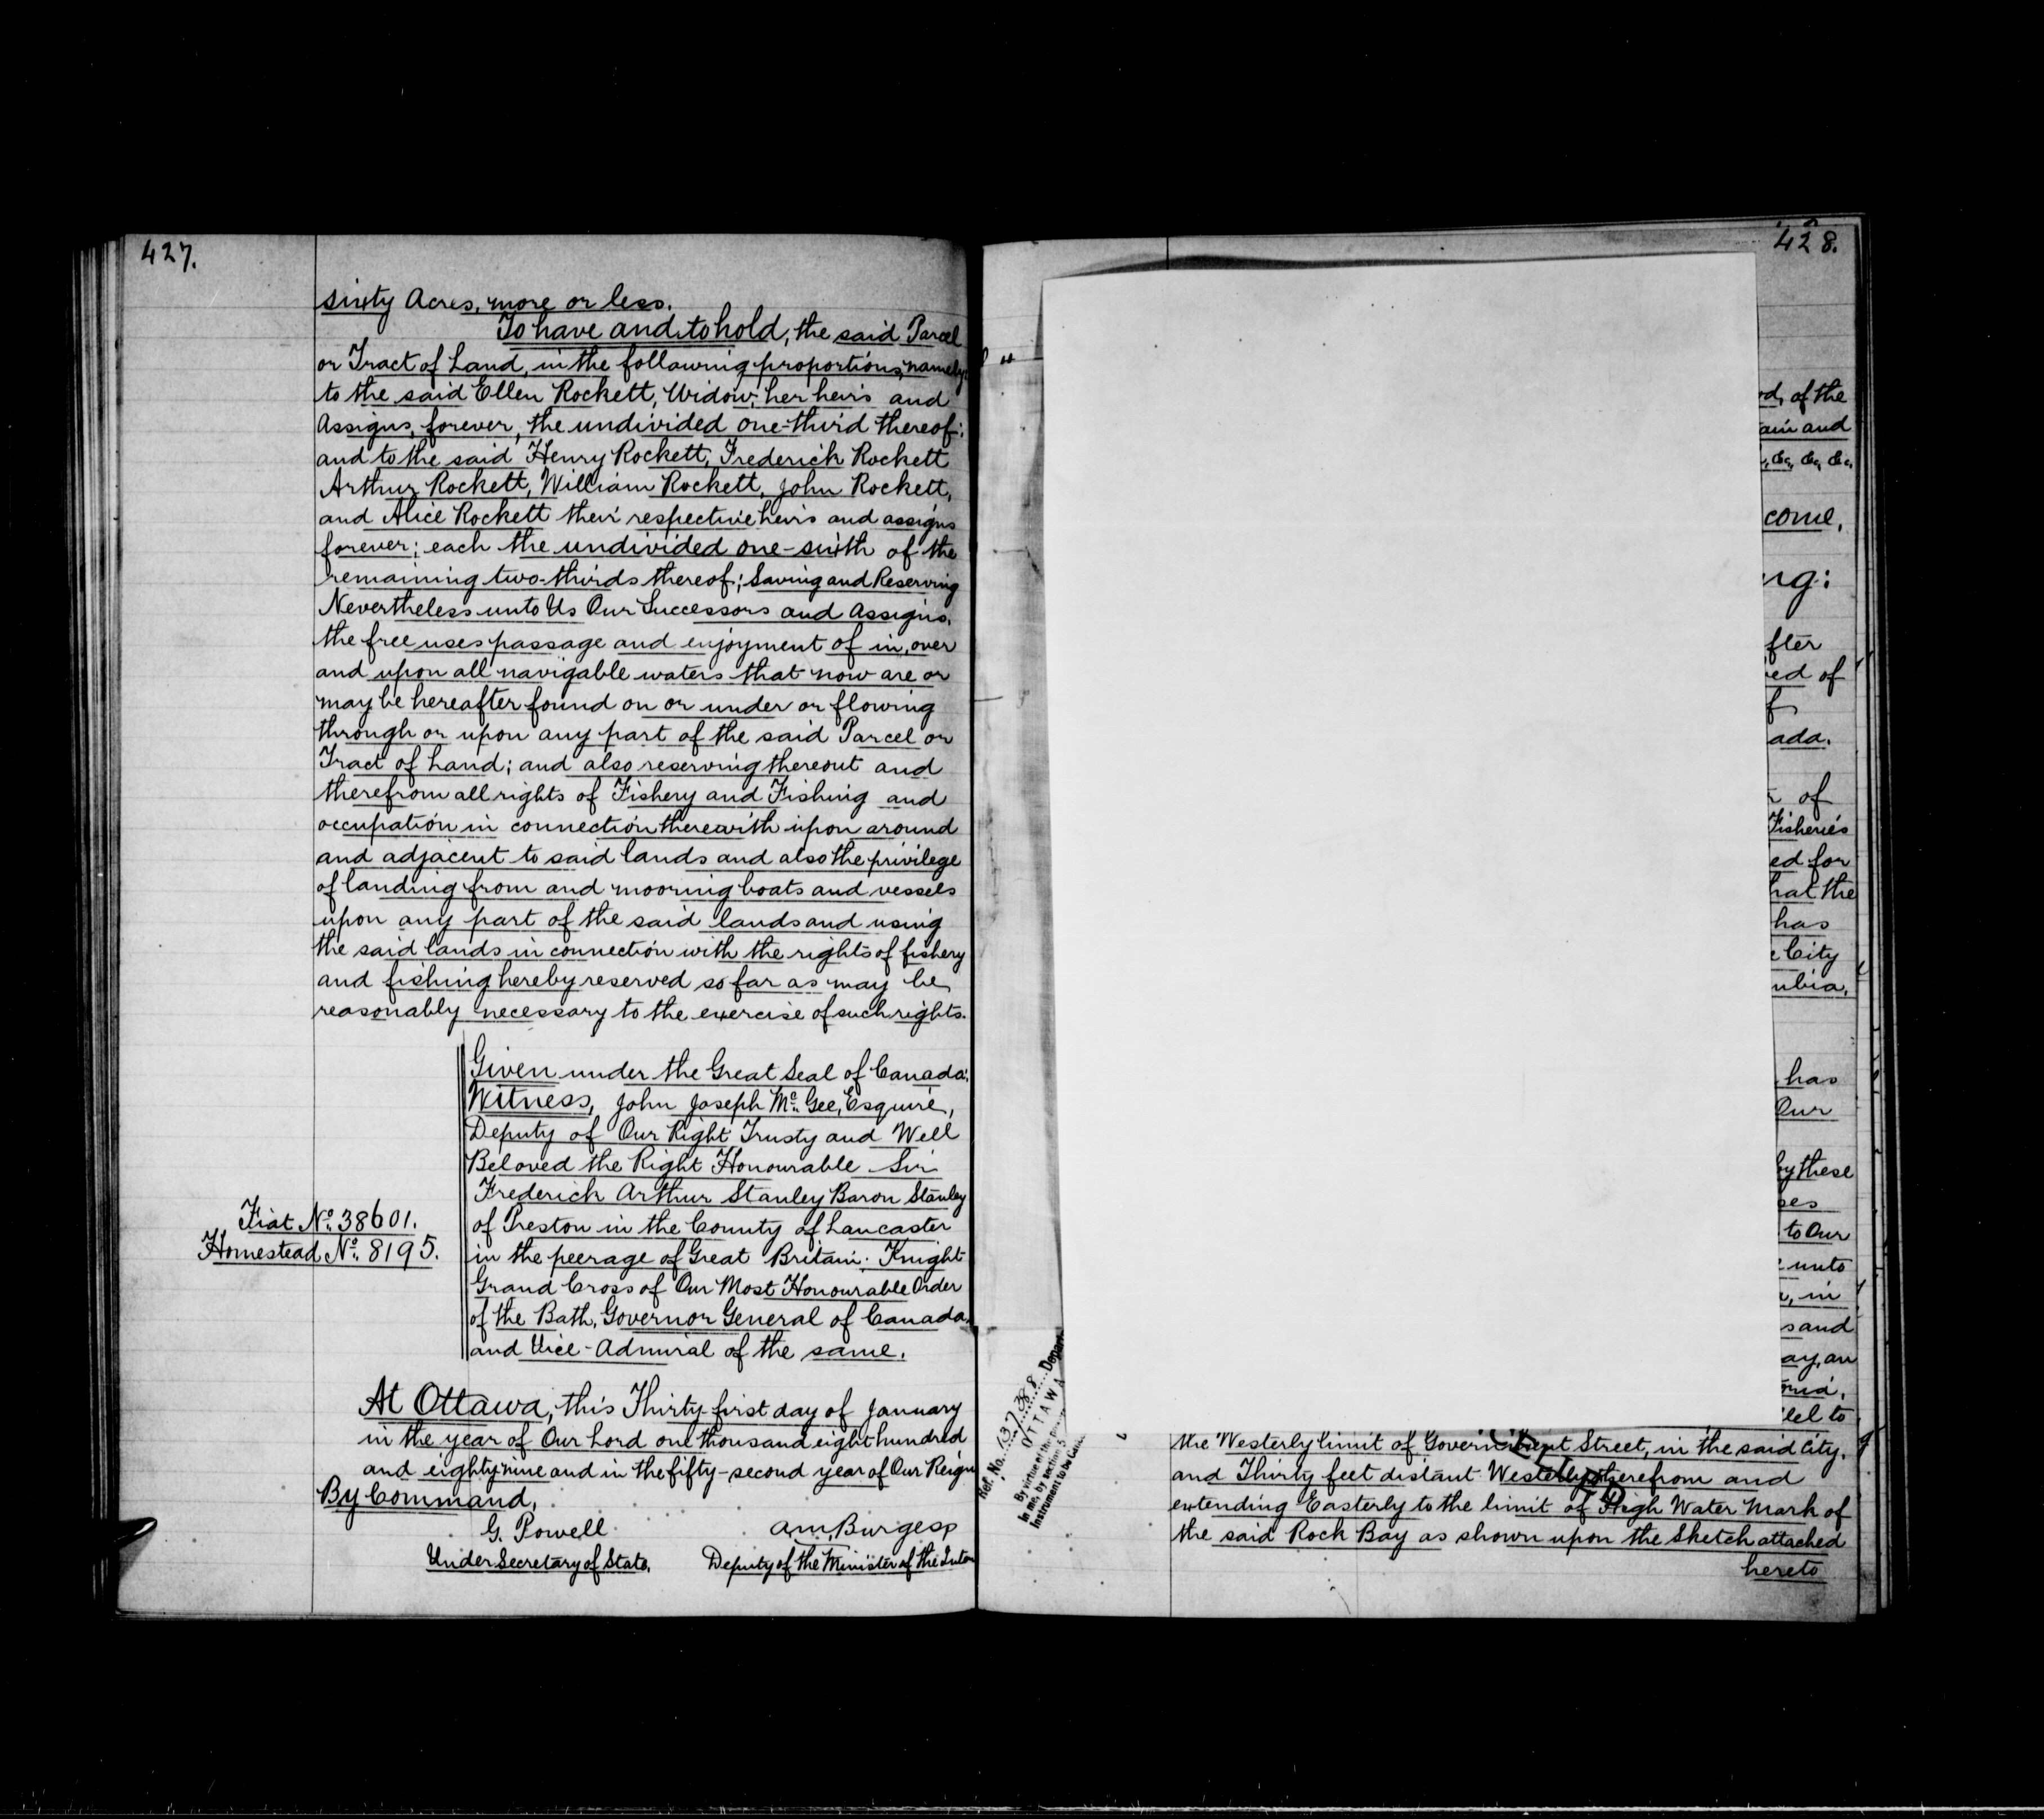 427.
sixty Acres, more or less.
To have and to hold, the said Parcel
or Tract of Land, in the following proportions, namely:
to the said Ellen Rockett, Widow, her heirs and
Assigns, forever, the undivided one-third thereof;
and to the said Henry Rockett, Frederick Rockett
Arthur Rockett, William Rockett, John Rockett,
and Alice Rockett their respective heirs and assigns
forever; each the undivided one-sixth of the
remaining two-thirds thereof; Saving and Reserving
Nevertheless unto Us Our Successors and Assigns,
the free uses passage and enjoyment of in, over
and upon all navigable waters that now are or
may be hereafter found on or under or flowing
through or upon any part of the said Parcel or
Tract of Land; and also reserving thereout and
therefrom all rights of Fishery and Fishing and
occupation in connection therewith upon around
and adjacent to said lands and also the privilege
of landing from and mooring boats and vessels
upon any part of the said lands and using
the said lands in connection with the rights of fishery
and fishing hereby reserved so far as may be
reasonably necessary to the exercise of such rights.
Given under the Great Seal of Canada:
Witness, John Joseph Mc. Gee, Esquire,
Deputy of Our Right Trusty and Well
Beloved the Right Honourable Sir
Frederick Arthur Stanley Baron Stanley
of Preston in the County of Lancaster
in the peerage of Great Britain: Knight
Grand Cross of Our Most Honourable Order
of the Bath, Governor General of Canada,
and Vice-Admiral of the same.
Fiat No. 38601.
Homestead No. 8195.
At Ottawa, this Thirty-first day of January
in the year of Our Lord one thousand eight hundred
and eighty-nine and in the fifty-second year of Our Reign
By Command,
G. Powell
A M Burgess
Under Secretary of State.
Deputy of the Minister of the Inter
428.
of the
and
&c, &c, &c.
come,
of
of
Fisheries
for
the
has
City
has
Our
by these
to Our
unto
in
and
an
to
Ref. No. 137388 Depart
OTTAWA
By virtue of the
in me, by section 5
Instrument to be
the Westerly limit of Government Street, in the said City,
and Thirty feet distant Westerly therefrom and
extending Easterly to the limit of High Water Mark of
the said Rock Bay as shown upon the Sketch attached
hereto